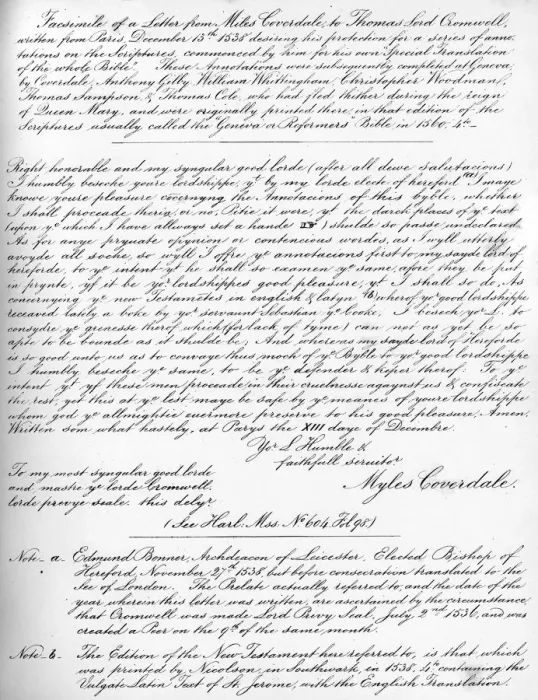 Facsimile of a Letter from Miles Coverdale, to Thomas Lord Cromwell,
written from Paris, December 13th 1538 desiring his protection for a series of anno-
tations on the Scriptures, commenced by him for his own "Special Translation
of the whole Bible." These Annotations were subsequently completed at Geneva
by Coverdale, Anthony Gilby, William Whittingham, Christopher Woodman,
Thomas Sampson, & Thomas Cole, who had fled thither during the reign
of Queen Mary, and were originally printed there, in that edition of the
Scriptures usually called the "Geneva or Reformers' Bible in 1560, 4to
Right honorable and my syngular good lorde (after all dewe salutacions)
I humbly beseche youre lordshippe, yt by my lorde electe of hereford (a) I maye
knowe youre pleasure cōcernyng the Annotacions of this byble, whether
I shall proceade therin, or no, Pitie it were, yt the darck places of ye text
(upon ye which I have allwayes set a hande ) shulde so passe undeclared.
As for anye pryuate opynion or contencious wordes, as I wyll utterly
avoyde all soche, so wyll I offre ye annotacions first to my sayde lord of
hereforde, to ye intent yt he shall so examen ye same, afore they be put
in prynte, yf it be yor lordshippes good pleasure, yt I shall so do. As
concernyng ye new Testamētes in english & latyn (b) wherof yor good lordshippe
receaved lately a boke by yor servaunt Sebastian ye cooke, I besech yor L. to
consydre ye grenesse therof which (for lack of tyme) can not as yet be so
apte to be bounde as it shulde be; And whereas my sayde lord of Hereforde
is so good unto us as to convaye thus moch of ye Byble to yor good lordshippe
I humbly beseche ye same, to be ye defender & keper therof: To ye
intent yt yf these men proceade in their cruelnesse agaynst us & confiscate
the rest, yet this at ye lest maye be safe by ye meanes of youre lordshippe
whom god ye allmightie euermore preserve to his good pleasure. Amen.
Written som what hastely, at Parys the XIII daye of Decembre.
Yor L Humble &
faithfull seruitor
Myles Coverdale.
To my most syngular good lorde
and mastre ye lorde Cromwell,
lorde prevye seale. this delyr
(See Harl: Mss. No 604, Fol 98)
Note - a - Edmund Bonner, Archdeacon of Leicester, Elected Bishop of
Hereford, November 27th 1538, but before consecration translated to the
See of London. The Prelate actually referred to, and the date of the
year wherein this letter was written, are ascertained by the circumstance
that Cromwell was made Lord Privy Seal, July 2nd 1536, and was
created a Peer on the 9th of the same month.
Note - b - The Edition of the New Testament here referred to, is that which
was printed by Nicolson, in Southwark, in 1538, 4to containing the
Vulgate Latin Text of St. Jerome, with the English Translation.